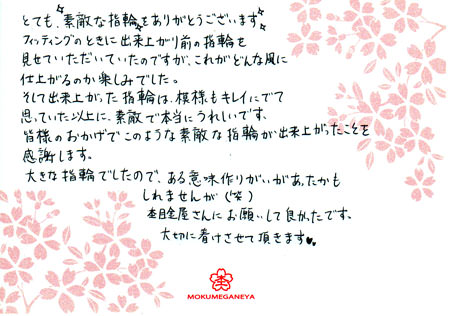 とても、素敵な指輪をありがとうございます
フィッティングのときに出来上がり前の指輪を
見せていただいていたのですが、これがどんな風に
仕上がるのか楽しみでした。
そして出来上がった指輪は、模様もキレイにでて
思っていた以上に、素敵で本当にうれしいです。
皆様のおかげでこのような素敵な指輪が出来上がったことを
感謝します。
大きな指輪でしたので、ある意味作りがいがあったかも
しれませんが（笑）
杢目金屋さんにお願いして良かったです。
大切に着けさせて頂きます♥
杢
MOKUMEGANEYA